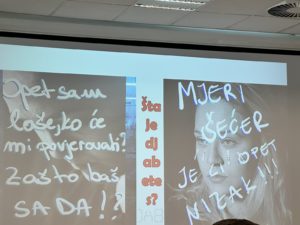 Opet sam
loše, ko će
mi povjerovati?
Zašto baš
SADA!?
Šta
je
dj
ab
ete
s?
MJERI
ŠEĆER
JE LI OPET
NIZAK!!!